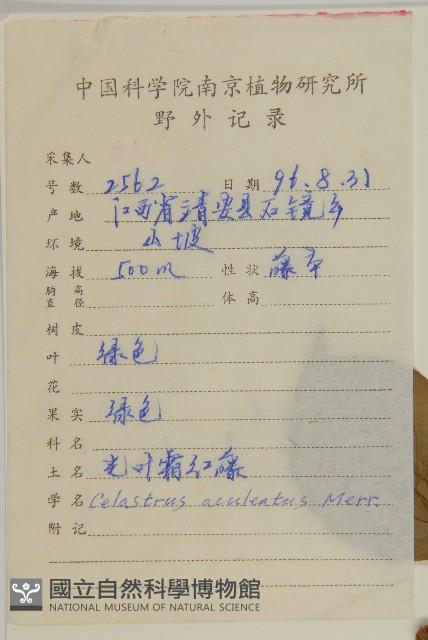 中国科学院南京植物研究所
野外记录
采集人
号数 2562 日期 96.8.31
产地 江西省靖安县石镜
环境 山坡
海拔 500m 性状 藤本
胸高直径 体高
树皮
叶 绿色
花
果实 绿色
科名
土名 光叶霜红藤
学名 Celastrus aculeatus Merr.
附记
國立自然科學博物館
NATIONAL MUSEUM OF NATURAL SCIENCE